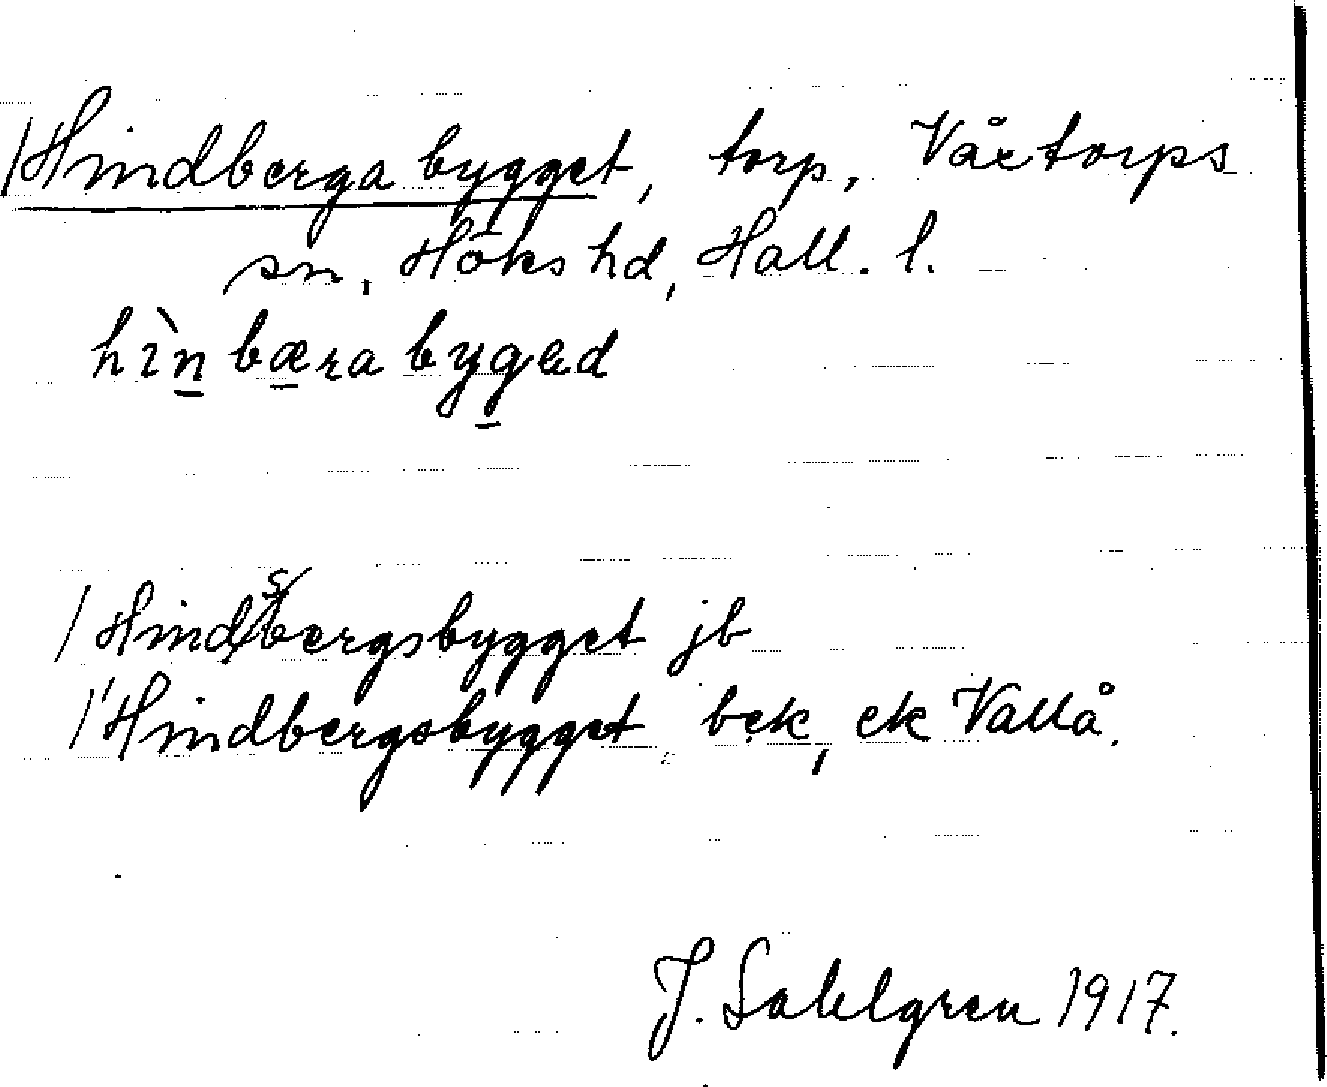 /Hindberga bygget, torp, Våxtorps
sn, Höks hd, Hall. l.
hìn bæra bygəd
/ Hindsbergsbygget jb
/ Hindbergsbygget, bek, ek Vallå.
J. Sahlgren 1917.